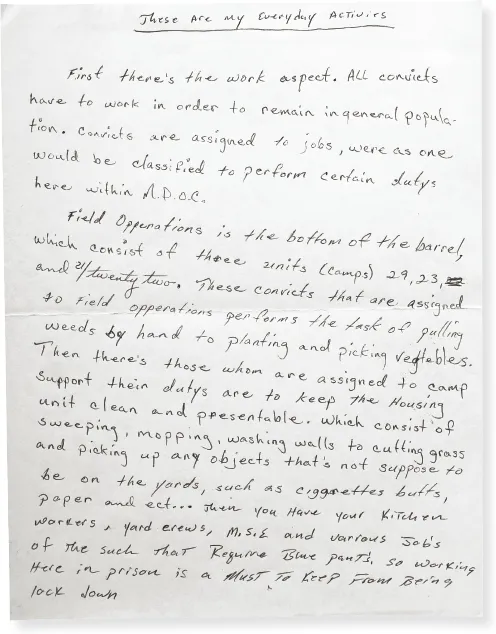 These Are my Everyday Activirs
First there's the work aspect. All convicts
have to work in order to remain in general popula-
tion. Convicts are assigned to jobs, were as one
would be classified to perform certain dutys
here within M.D.O.C.
Field Opperations is the bottom of the barrel,
which consist of three units (camps) 29, 23,
and 21/twenty two. These convicts that are assigned
to field opperations performs the task of pulling
weeds by hand to planting and picking vegtables.
Then there's those whom are assigned to camp
support their dutys are to keep the Housing
unit clean and presentable. Which consist of
sweeping, mopping, washing walls to cutting grass
and picking up any objects that's not suppose to
be on the yards, such as ciggrettes butts,
paper and ect... Then you Have your Kitchen
workers, yard crews, M.S.E and various Job's
of the such that Require Blue pants. So working
Here in prison is a Must To Keep From Being
lock down